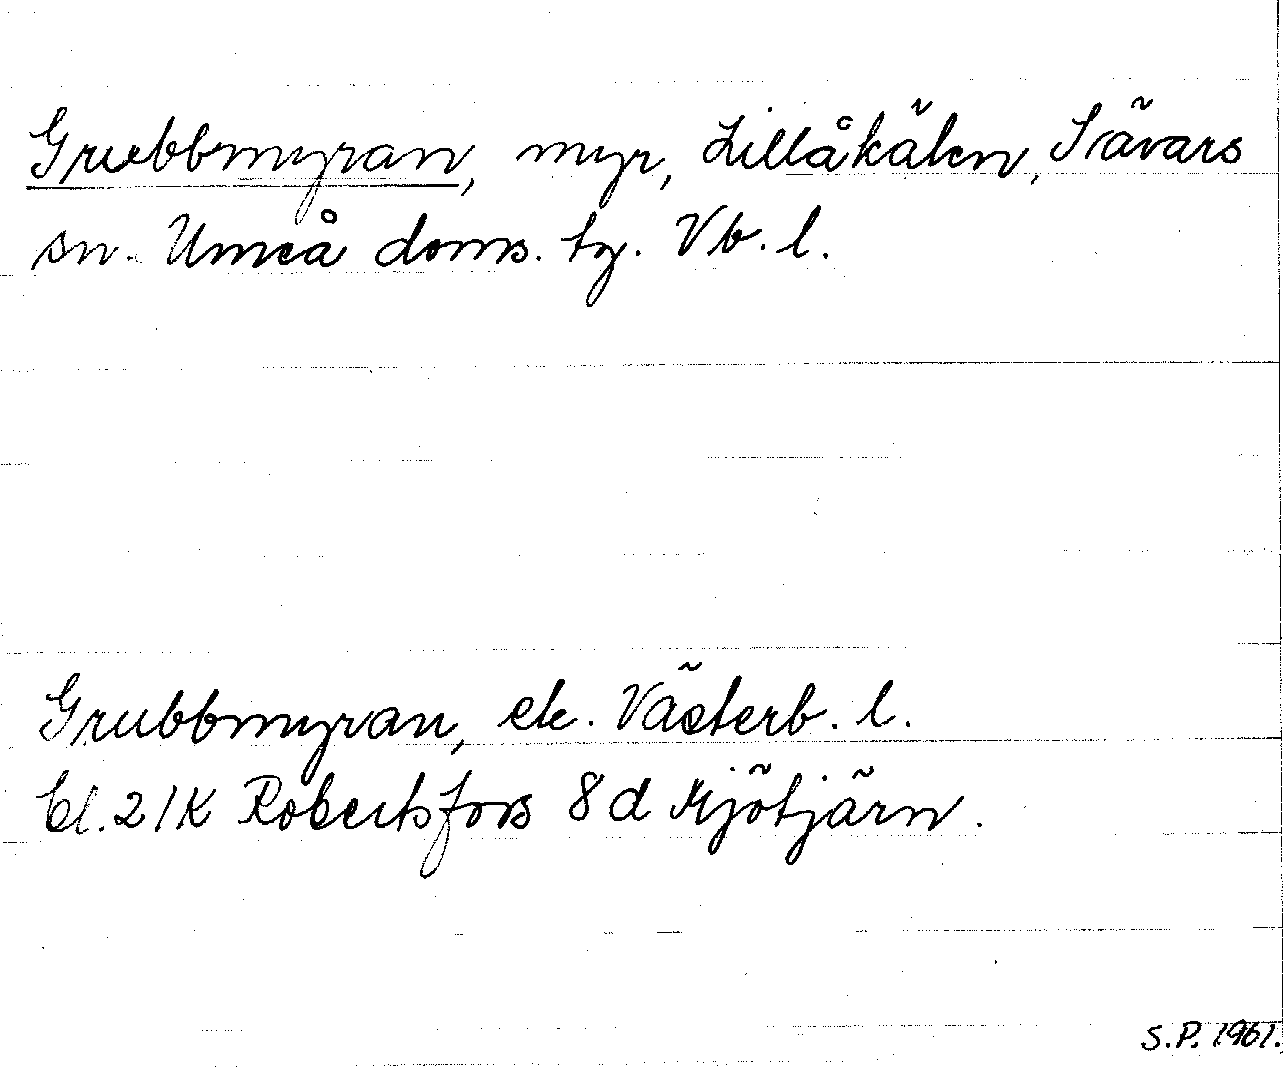 Grubbmyran, myr, Lillåkälen, Sävars
sn. Umeå doms. tg. Vb. l.
Grubbmyran, ek. Västerb. l.
bl. 21K Robertsfors 8d Mjötjärn.
S.P. 1961.